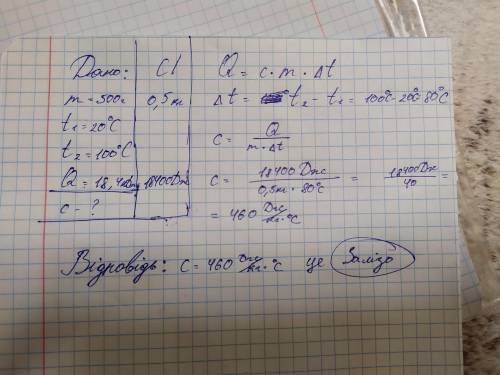 Дано: СІ
m = 500г 0,5 кг
t₁ = 20°C
t₂ = 100°C
Q = 18,4кДж 18400Дж
c - ?
Q = c · m · Δt
Δt = t₂ - t₁ = 100°C - 20°C = 80°C
c = Q / m · Δt
c = 18400 Дж / 0,5кг · 80°C = 18400 Дж / 40 =
= 460 Дж / кг · °C
Відповідь: c = 460 Дж / кг · °C це Залізо